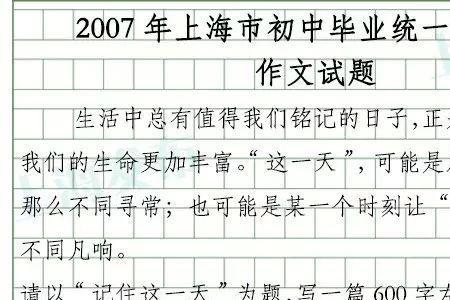 2007年上海市初中毕业统一
作文试题
生活中总有值得我们铭记的日子,正
我们的生命更加丰富。“这一天”,可能是
那么不同寻常;也可能是某一个时刻让“
不同凡响。
请以“记住这一天”为题,写一篇600字